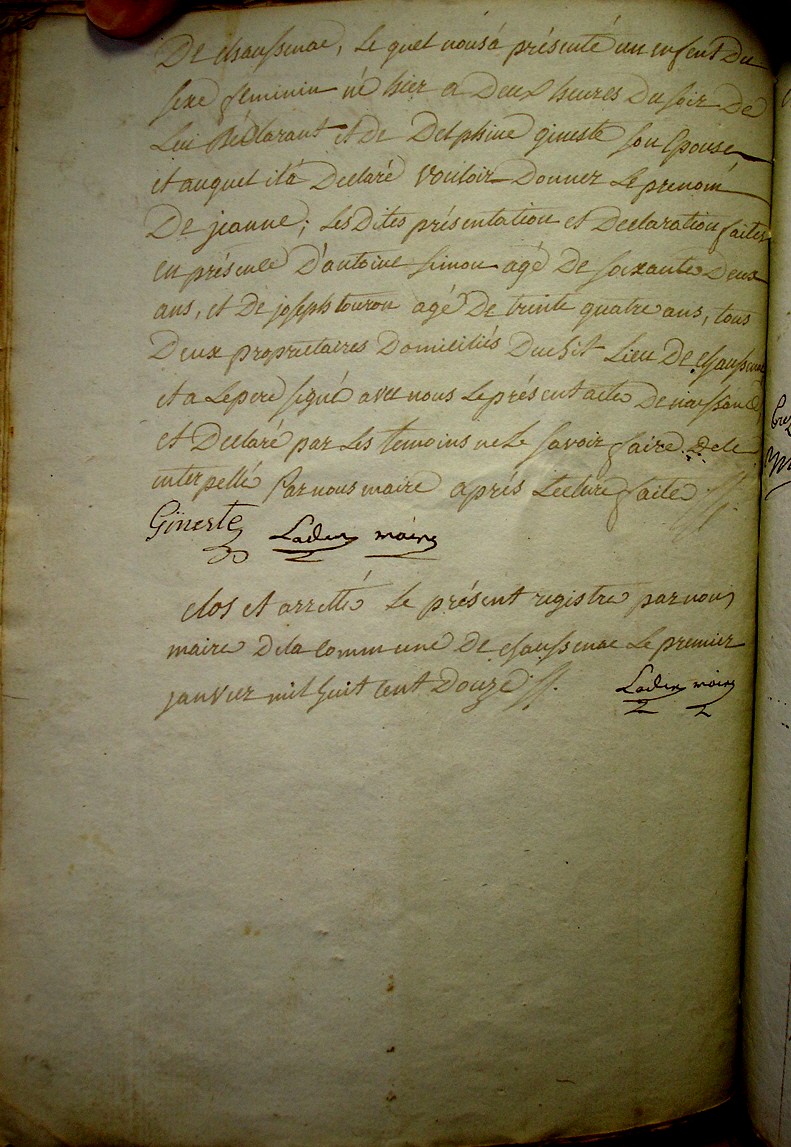 De chaussenac, le quel nous à présenté un enfent du
sexe feminin né hier a Deux heures Du soir De
Lui Déclarant et de Delphine gineste son Epouse
et auquel il à Declaré vouloir Donner le prenom
De jeanne; les Dites présentation et Declaration faites
en présence D'antoine Simon agé De soixante Deux
ans, et De joseph touron agé De trente quatre ans, tous
Deux proprietaires Domiciliés Dudit Lieu De chaussenac
et a le pere signé avec nous le présent acte De naissance,
et Declaré par les temoins ne le savoir faire De ce
interpellé Par nous maire aprés Lecture faite //
Gineste Laden maire
clos et arretté le présent registre par nous
maire Dela commune De chaussenac le premier
janvier mil huit cent Douze //. Laden maire